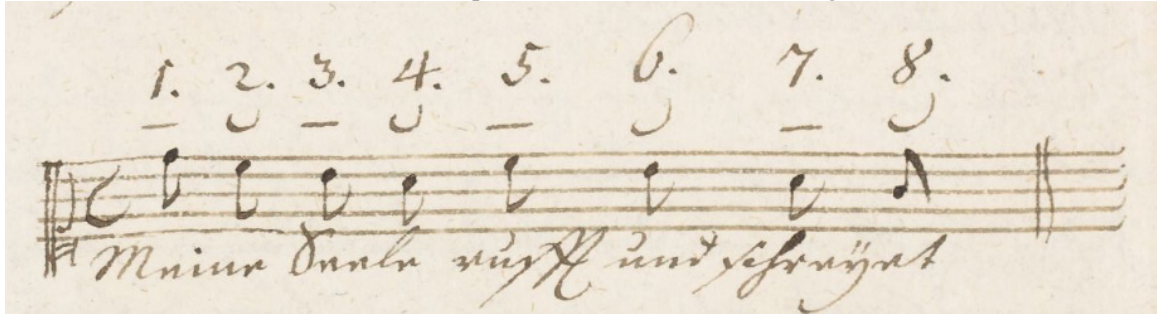 1. 2. 3. 4. 5. 6. 7. 8.
Meine Seele rufft und schreyet